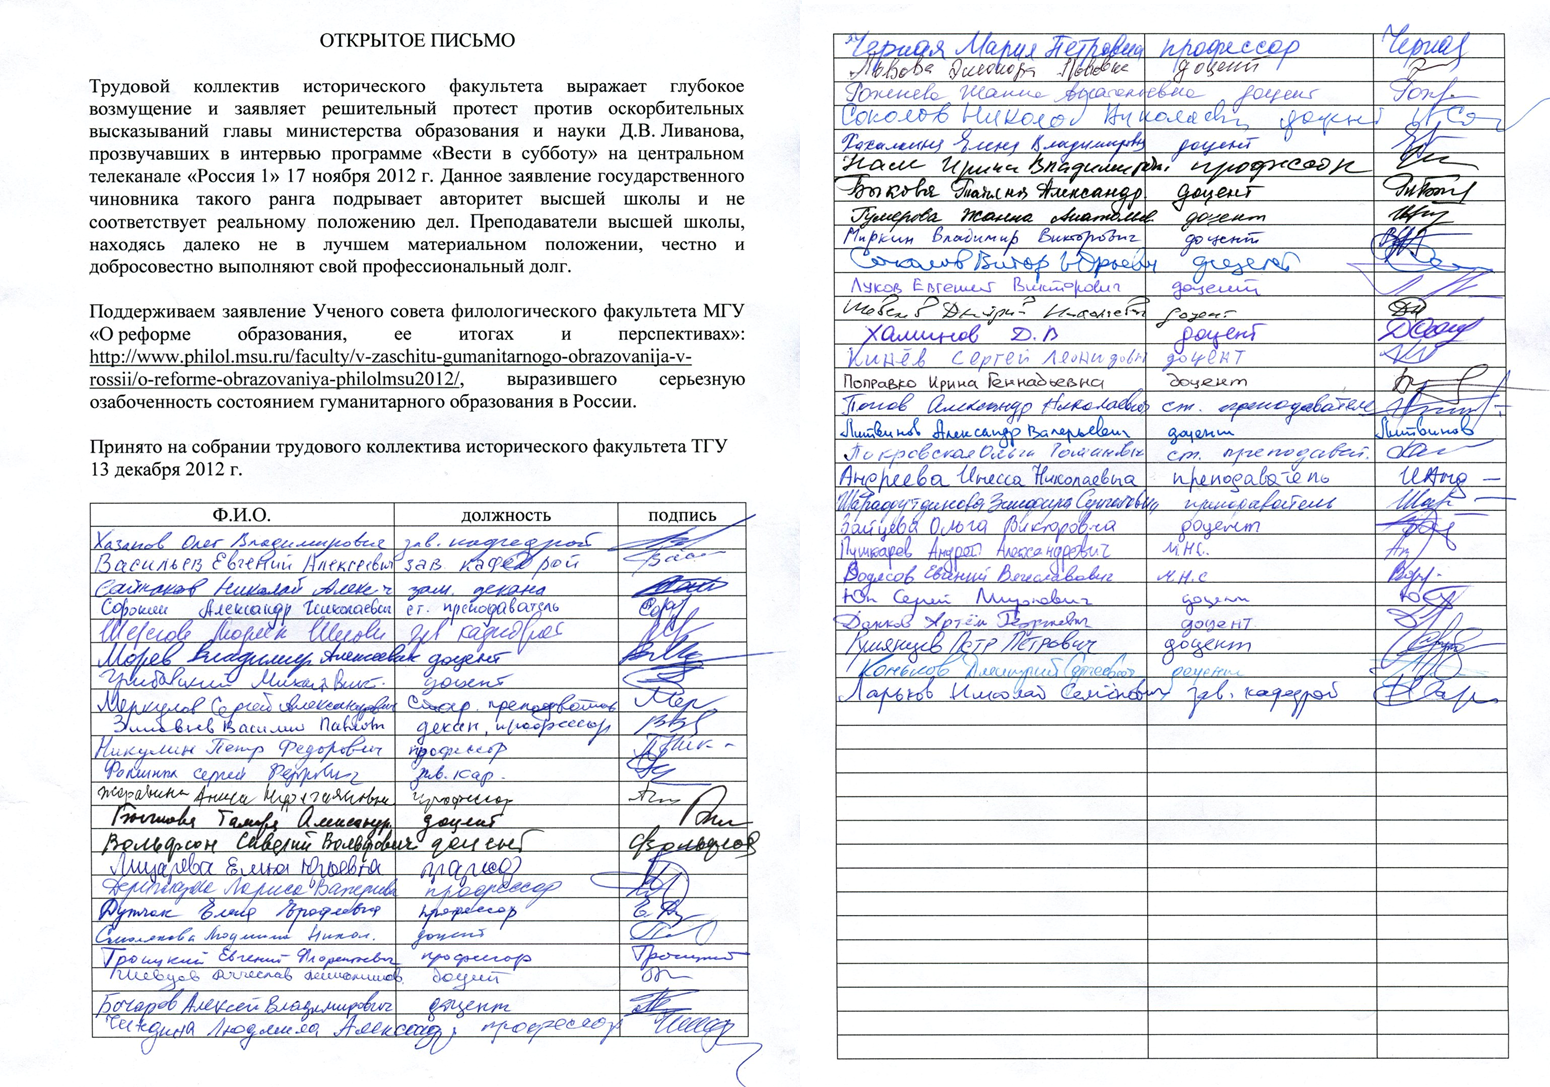 ОТКРЫТОЕ ПИСЬМО
Трудовой коллектив исторического факультета выражает глубокое
возмущение и заявляет решительный протест против оскорбительных
высказываний главы министерства образования и науки Д.В. Ливанова,
прозвучавших в интервью программе «Вести в субботу» на центральном
телеканале «Россия 1» 17 ноября 2012 г. Данное заявление государственного
чиновника такого ранга подрывает авторитет высшей школы и не
соответствует реальному положению дел. Преподаватели высшей школы,
находясь далеко не в лучшем материальном положении, честно и
добросовестно выполняют свой профессиональный долг.
Поддерживаем заявление Ученого совета филологического факультета МГУ
«О реформе образования, ее итогах и перспективах»:
http://www.philol.msu.ru/faculty/v-zaschitu-gumanitarnogo-obrazovanija-v-
rossii/o-reforme-obrazovaniya-philolmsu2012/, выразившего серьезную
озабоченность состоянием гуманитарного образования в России.
Принято на собрании трудового коллектива исторического факультета ТГУ
13 декабря 2012 г.
Ф.И.О. должность подпись
Хазанов Олег Владимирович зав. кафедрой
Васильев Евгений Алексеевич зав кафедрой
Николай зам. декана
Сорокин Александр Николаевич ст. преподаватель
зав кафедрой
Морев Владимир Алексеевич доцент
Грибовский Михаил Викт. доцент
Меркулов Сергей Александрович преподаватель
Зиновьев Василий Павлович декан, профессор
Никулин Петр Федорович профессор
Фоминых Сергей Федорович зав. каф.
Жеравина Аниса Нургайтновна профессор
Тамара Александр. доцент
Вольфсон Савелий Вольфович доцент Вольфсон
Лицарева Елена Юрьевна профессор
Лариса Валерьевна профессор
Дутчак Елена Ерофеевна профессор
Людмила Никол. доцент
Троицкий Евгений Флорентьевич профессор Троицкий
Шевцов Вячеслав доцент
Бочаров Алексей Владимирович доцент
Чиндина Людмила Александр. профессор
Черная Мария Петровна профессор Черная
Львова Элеонора Львовна доцент
Рожнева Жанна Анатольевна доцент
Соколов Николай Николаевич доцент
Хахалкина Елена Владимировна доцент
Нам Ирина Владимировна профессор
Быкова Татьяна Александр. доцент
Гумерова Жанна Анатольев. доцент
Миркин Владимир Викторович доцент
Соколов Виктор Юрьевич доцент
Луков Евгений Викторович доцент
Дмитрий Николаевич доцент
Хаминов Д.В доцент
Кинёв Сергей Леонидович доцент
Поправко Ирина Геннадьевна доцент
Попов Александр Николаевич ст. преподаватель
Литвинов Александр Валерьевич доцент Литвинов
Покровская Ольга Романовна ст. преподават.
Андреева Инесса Николаевна преподаватель
преподаватель
Зайцева Ольга Викторовна доцент
Пушкарев Андрей Александрович м.н.с.
Водясов Евгений Вячеславович м.н.с
Юн Сергей Миронович доцент
Данков Артём Георгиевич доцент
Румянцев Петр Петрович доцент
Коньков Дмитрий Сергеевич доцент
Ларьков Николай Семёнович зав. кафедрой